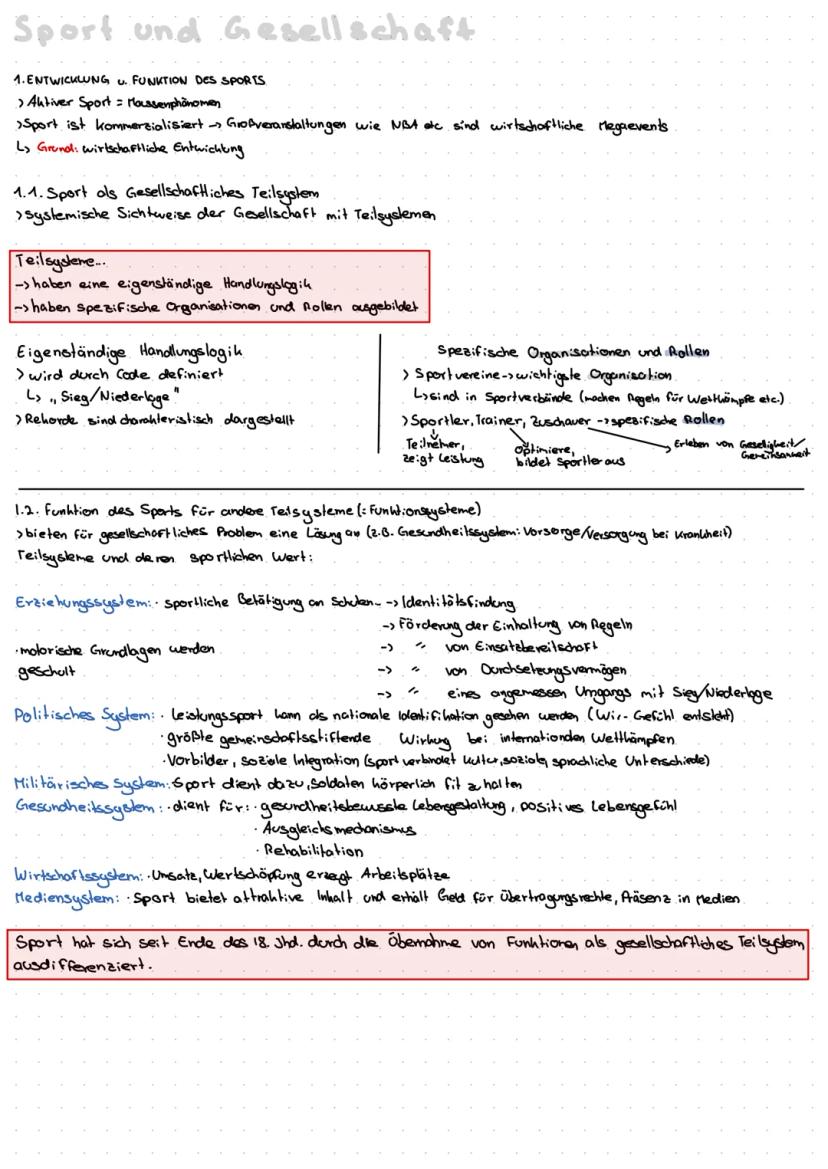 Sport und Gesellschaft
1. ENTWICKLUNG u. FUNKTION DES SPORTS
> Aktiver Sport = Massenphänomen
> Sport ist kommerzialisiert -> Großveranstaltungen wie NBA etc sind wirtschaftliche Megaevents
↳ Grund: wirtschaftliche Entwicklung
1.1. Sport als Gesellschaftliches Teilsystem
> systemische Sichtweise der Gesellschaft mit Teilsystemen
Teilsysteme...
-> haben eine eigenständige Handlungslogik
-> haben spezifische Organisationen und Rollen ausgebildet
Eigenständige Handlungslogik
> wird durch Code definiert
↳ "Sieg/Niederlage"
> Rekorde sind charakteristisch dargestellt
Spezifische Organisationen und Rollen
> Sportvereine -> wichtigste Organisation
↳ sind in Sportverbände (machen Regeln für Wettkämpfe etc.)
> Sportler, Trainer, Zuschauer -> spezifische Rollen
Teilneher, zeigt Leistung
Optimiere, bildet Sportler aus
Erleben von Geselligkeit/ Gemeinsamkeit
1.2. Funktion des Sports für andere Teilsysteme (= Funktionssysteme)
> bieten für gesellschaftliches Problem eine Lösung an (z.B. Gesundheitssystem: Vorsorge/Versorgung bei Krankheit)
Teilsysteme und deren sportlichen Wert:
Erziehungssystem: · sportliche Betätigung an Schulen -> Identitätsfindung
-> Förderung der Einhaltung von Regeln
· motorische Grundlagen werden -> " von Einsatzbereitschaft
geschult -> " von Durchsetzungsvermögen
-> " eines angemessen Umgangs mit Sieg/Niederlage
Politisches System: · Leistungssport kann als nationale Identifikation gesehen werden (Wir-Gefühl entsteht)
· größte gemeinschaftsstiftende Wirkung bei internationalen Wettkämpfen
· Vorbilder, soziale Integration (sport verbindet kultur, soziale, sprachliche Unterschiede)
Militärisches System: Sport dient dazu, Soldaten körperlich fit zu halten
Gesundheitssystem: · dient für: · gesundheitsbewusste Lebensgestaltung, positives Lebensgefühl
· Ausgleichsmechanismus
· Rehabilitation
Wirtschaftssystem: · Umsatz, Wertschöpfung erzeugt Arbeitsplätze
Mediensystem: · Sport bietet attraktive Inhalt und erhält Geld für Übertragungsrechte, Präsenz in Medien
Sport hat sich seit Ende des 18. Jhd. durch die Übernahme von Funktionen als gesellschaftliches Teilsystem
ausdifferenziert.